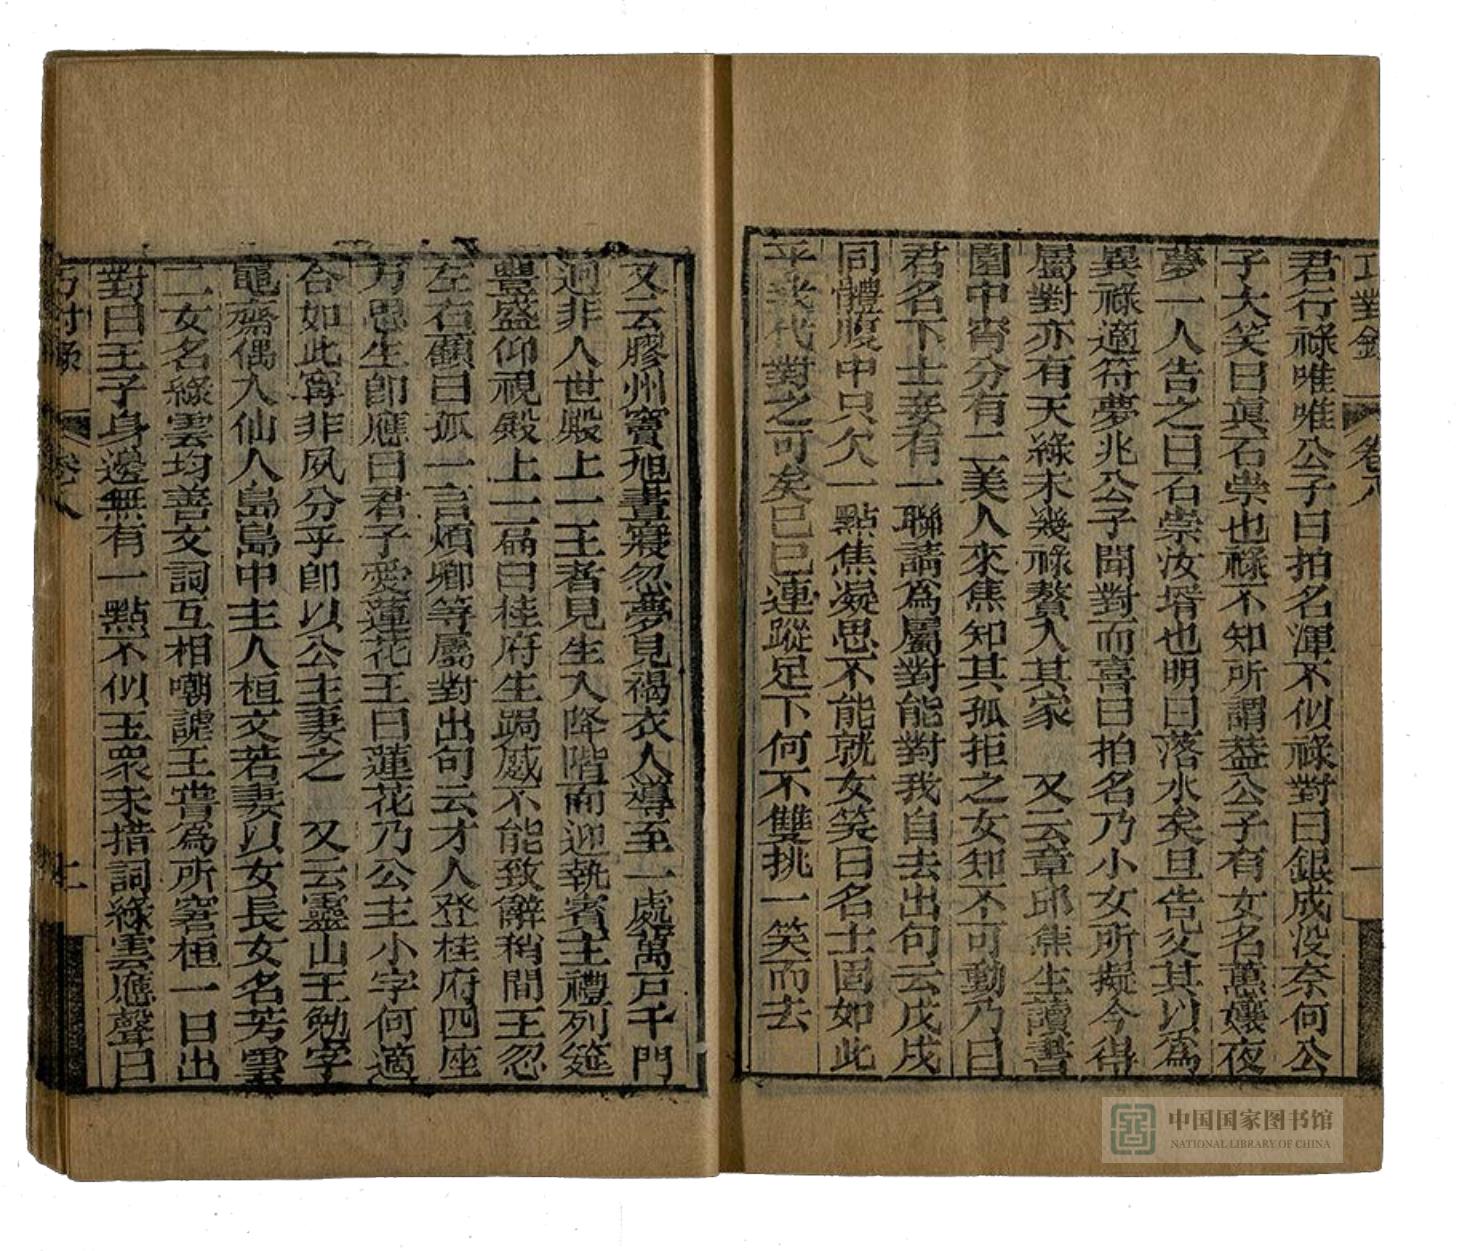 巧對錄 卷八 一
君行祿唯唯公子曰拍名渾不似祿對曰銀成没奈何公
子大笑曰真石崇也祿不知所謂葢公子有女名蕙孃夜
夢一人告之曰石崇汝壻也明日落水矣旦告父其以爲
異祿適符夢兆公子聞對而喜曰拍名乃小女所擬今得
屬對亦有天緣未幾祿贅入其家 又云章邱焦生讀書
園中宵分有二美人來焦知其孤拒之女知不可動乃曰
君名下士妾有一聯請爲屬對能對我自去出句云戊戌
同體腹中只欠一點焦凝思不能就女笑曰名士固如此
乎我代對之可矣己巳連蹤足下何不雙挑一笑而去
又云膠州竇旭晝寢忽夢見褐衣人導至一處萬戸千門
迥非人世殿上一王者見生入降階而迎執賓主禮列筵
豐盛仰視殿上一扁曰桂府生跼蹙不能致辭稍間王忽
左右顧曰孤一言煩卿等屬對出句云才人登桂府四座
方思生卽應曰君子愛蓮花王曰蓮花乃公主小字何適
合如此寧非夙分乎卽以公主妻之 又云靈山王勉字
黽齋偶入仙人島島中主人桓文若妻以女長女名芳雲
二女名綠雲均善文詞互相嘲謔王嘗爲所窘桓一日出
對曰王子身邊無有一點不似玉眾未措詞綠雲應聲曰
巧對錄 卷八 二